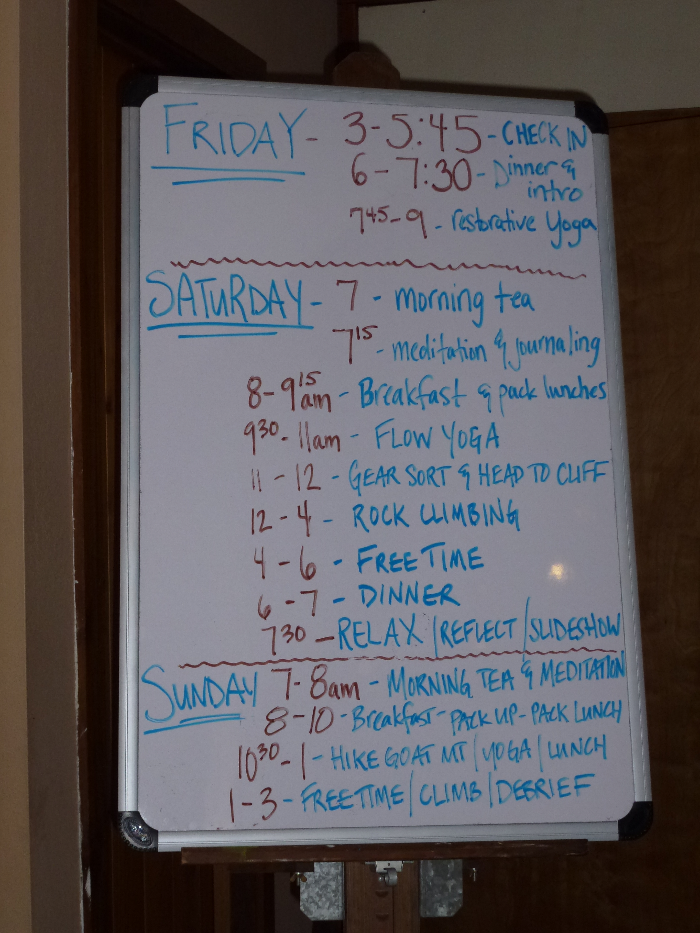 FRIDAY - 3-5:45 - CHECK IN
6 - 7:30 - Dinner &
intro
745-9 - restorative Yoga
SATURDAY - 7 - morning tea
715 - meditation & journaling
8-915am - Breakfast & pack lunches
930-11am - FLOW YOGA
11 - 12 - GEAR SORT & HEAD TO CLIFF
12 - 4 - ROCK CLIMBING
4 - 6 - FREE TIME
6 - 7 - DINNER
730 - RELAX / REFLECT / SLIDESHOW
SUNDAY 7-8am - MORNING TEA & MEDITATION
8-10 - Breakfast - PACK UP - PACK LUNCH
1030-1 - HIKE GOAT MT / YOGA / LUNCH
1-3 - FREE TIME / CLIMB / DEBRIEF